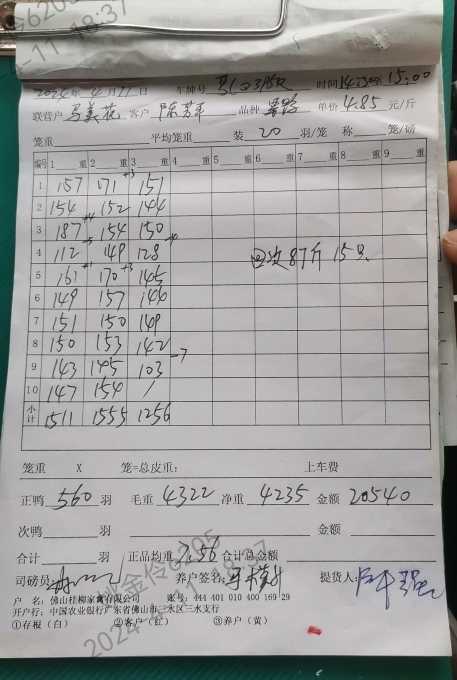 2024年4月11日 车牌号 时间14:23 至 15:00
联营户 客户 陈芳平 品种 单价 4.85 元/斤
笼重 平均笼重 装 20 羽/笼 称 笼/磅
编号 1 重 2 重 3 重 4 重 5 重 6 重 7 重 8 重 9 重
1 157 171 +3 151
2 154 152 144
3 187 154 150
4 112 149 128
5 161 170 +3 145
6 149 157 146
7 151 150 149
8 150 153 142
9 143 145 103 -7
10 147 154 /
小计 1511 1555 1256
次87斤 15只
笼重 X 笼=总皮重: 上车费
正鸭 560 羽 毛重 4322 净重 4235 金额 20540
次鸭 羽 金额
合计 羽 正品均重 7.56 合计总金额
司磅员: 养户签名: 提货人:
户 名: 佛山桂柳家禽有限公司 账号: 444 401 010 400 169 29
开户行: 中国农业银行广东省佛山市三水区三水支行
①存根(白) ②客户(红) ③养户(黄)